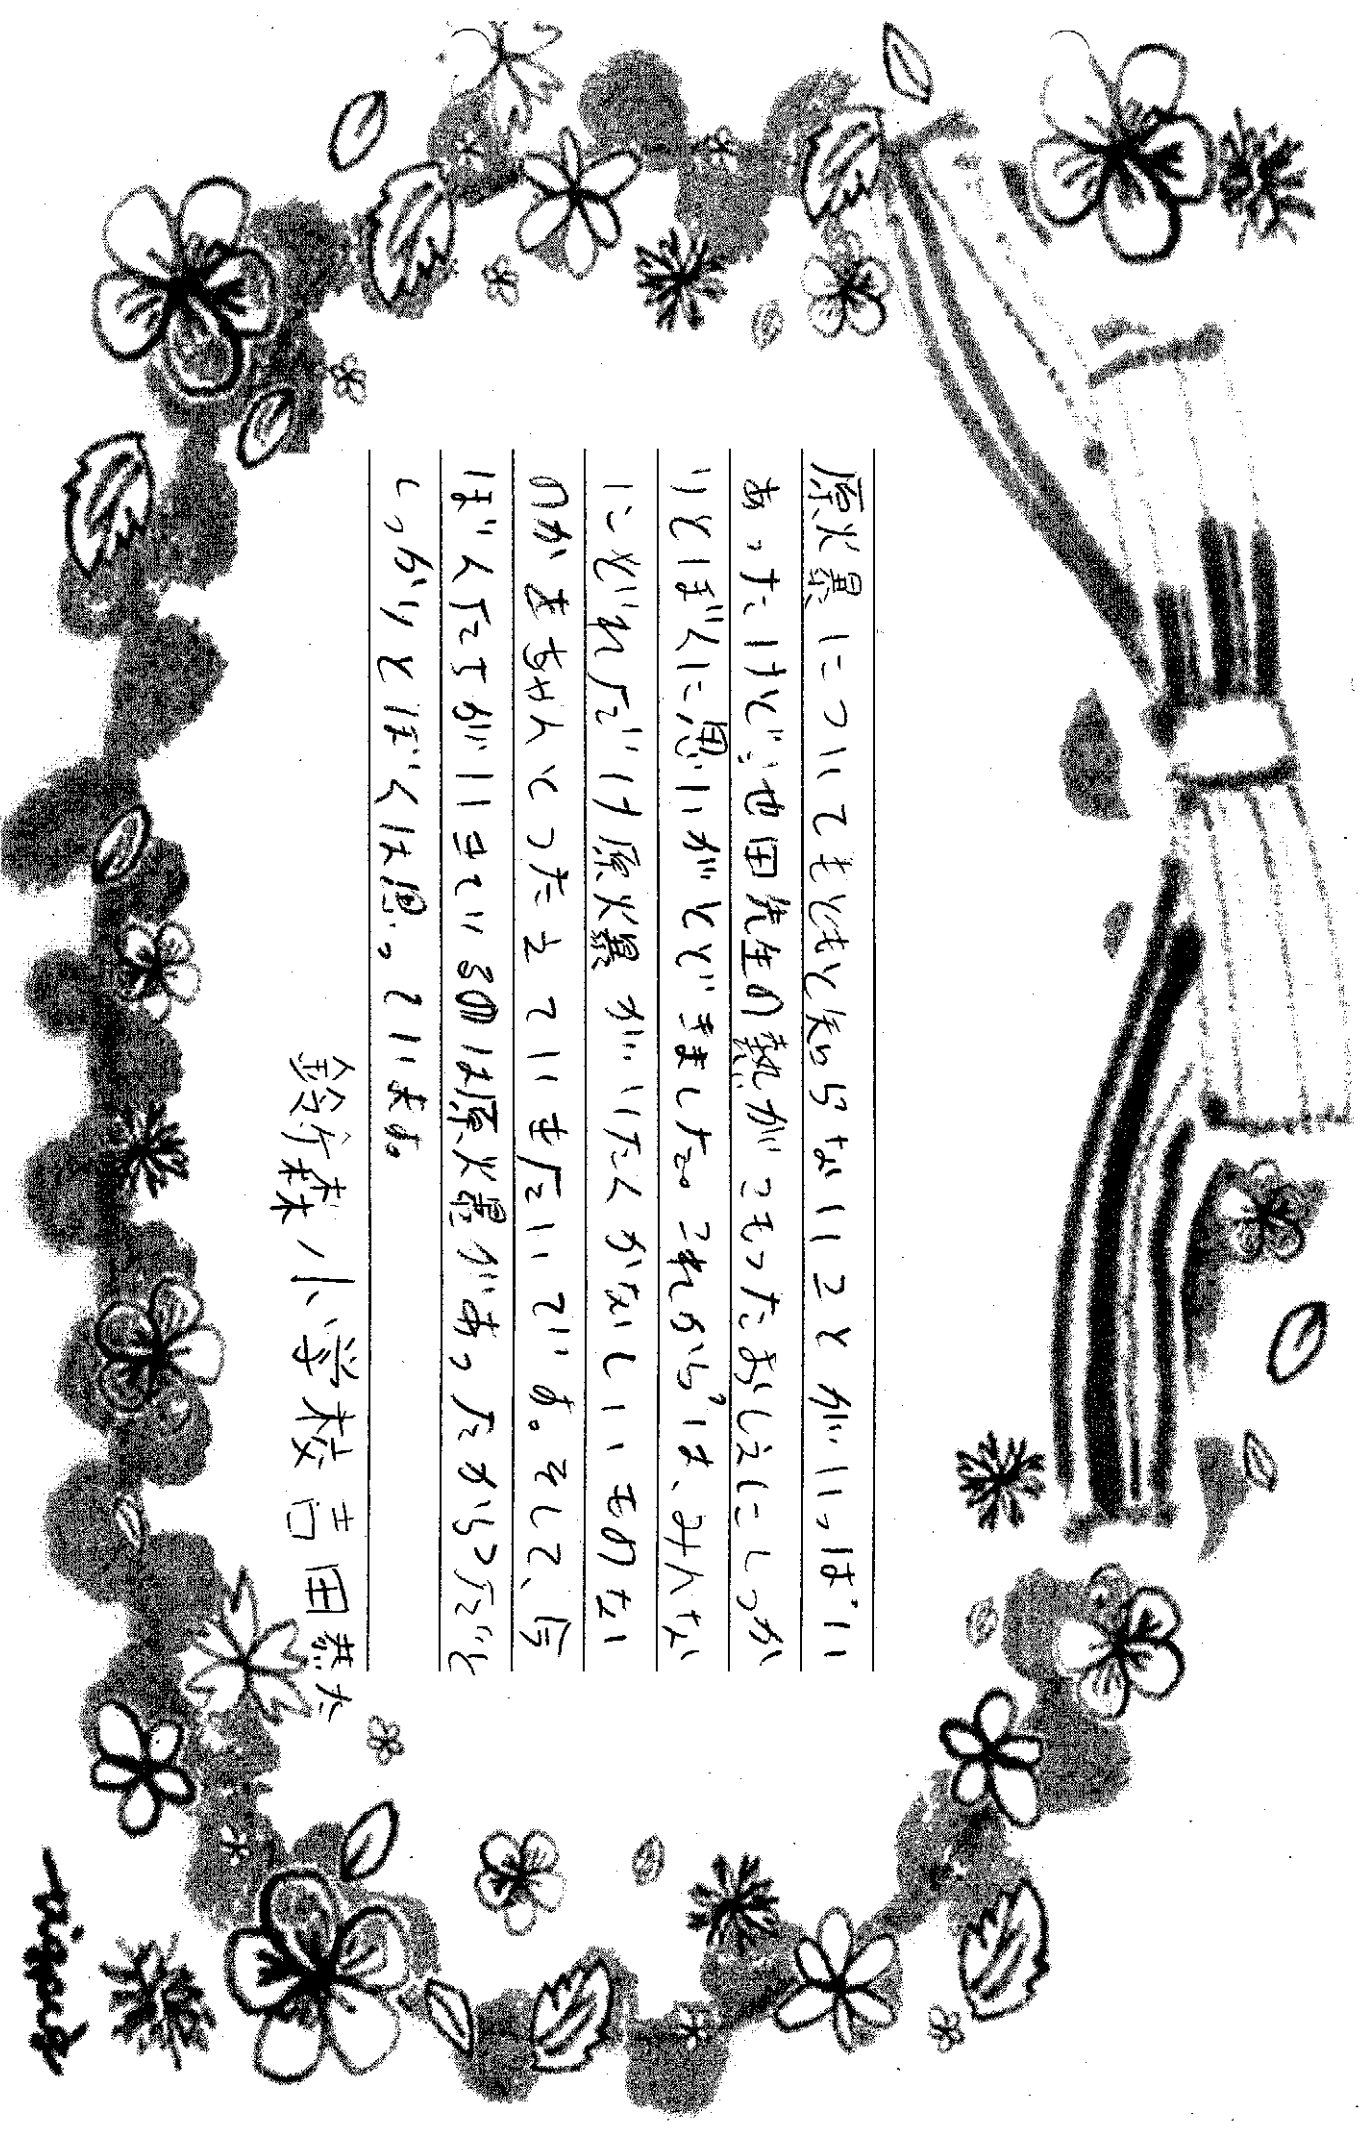 原火暴についてもともと知らないことがいっぱい
あったけど池田先生の熱がこもったおしえにしっか
りとぼくに思いがとどきました。これからは、みんな
にどれだけ原火暴がいけたくかなしいものな
のかをちゃんとつたえていきたいです。そして、
ぼくたちが生きているのは原火暴があったからこそだと
しっかりとぼくは思っています。
鈴ヶ森小学校 吉田恭大